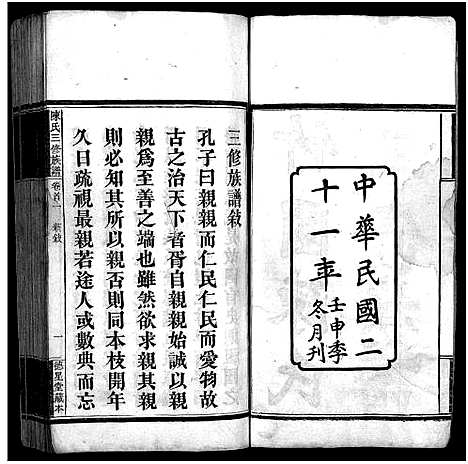 中華民國二
十一年壬申季
冬月刊
三修族譜敘
孔子曰親親而仁民仁民而愛物故
古之治天下者胥自親親始誠以親
親為至善之端也雖然欲求親其親
則必知其所以親否則同本枝開年
久日疏視最親若途人或數典而忘
陳氏三修族譜
卷首
新敘
一
德星堂藏本